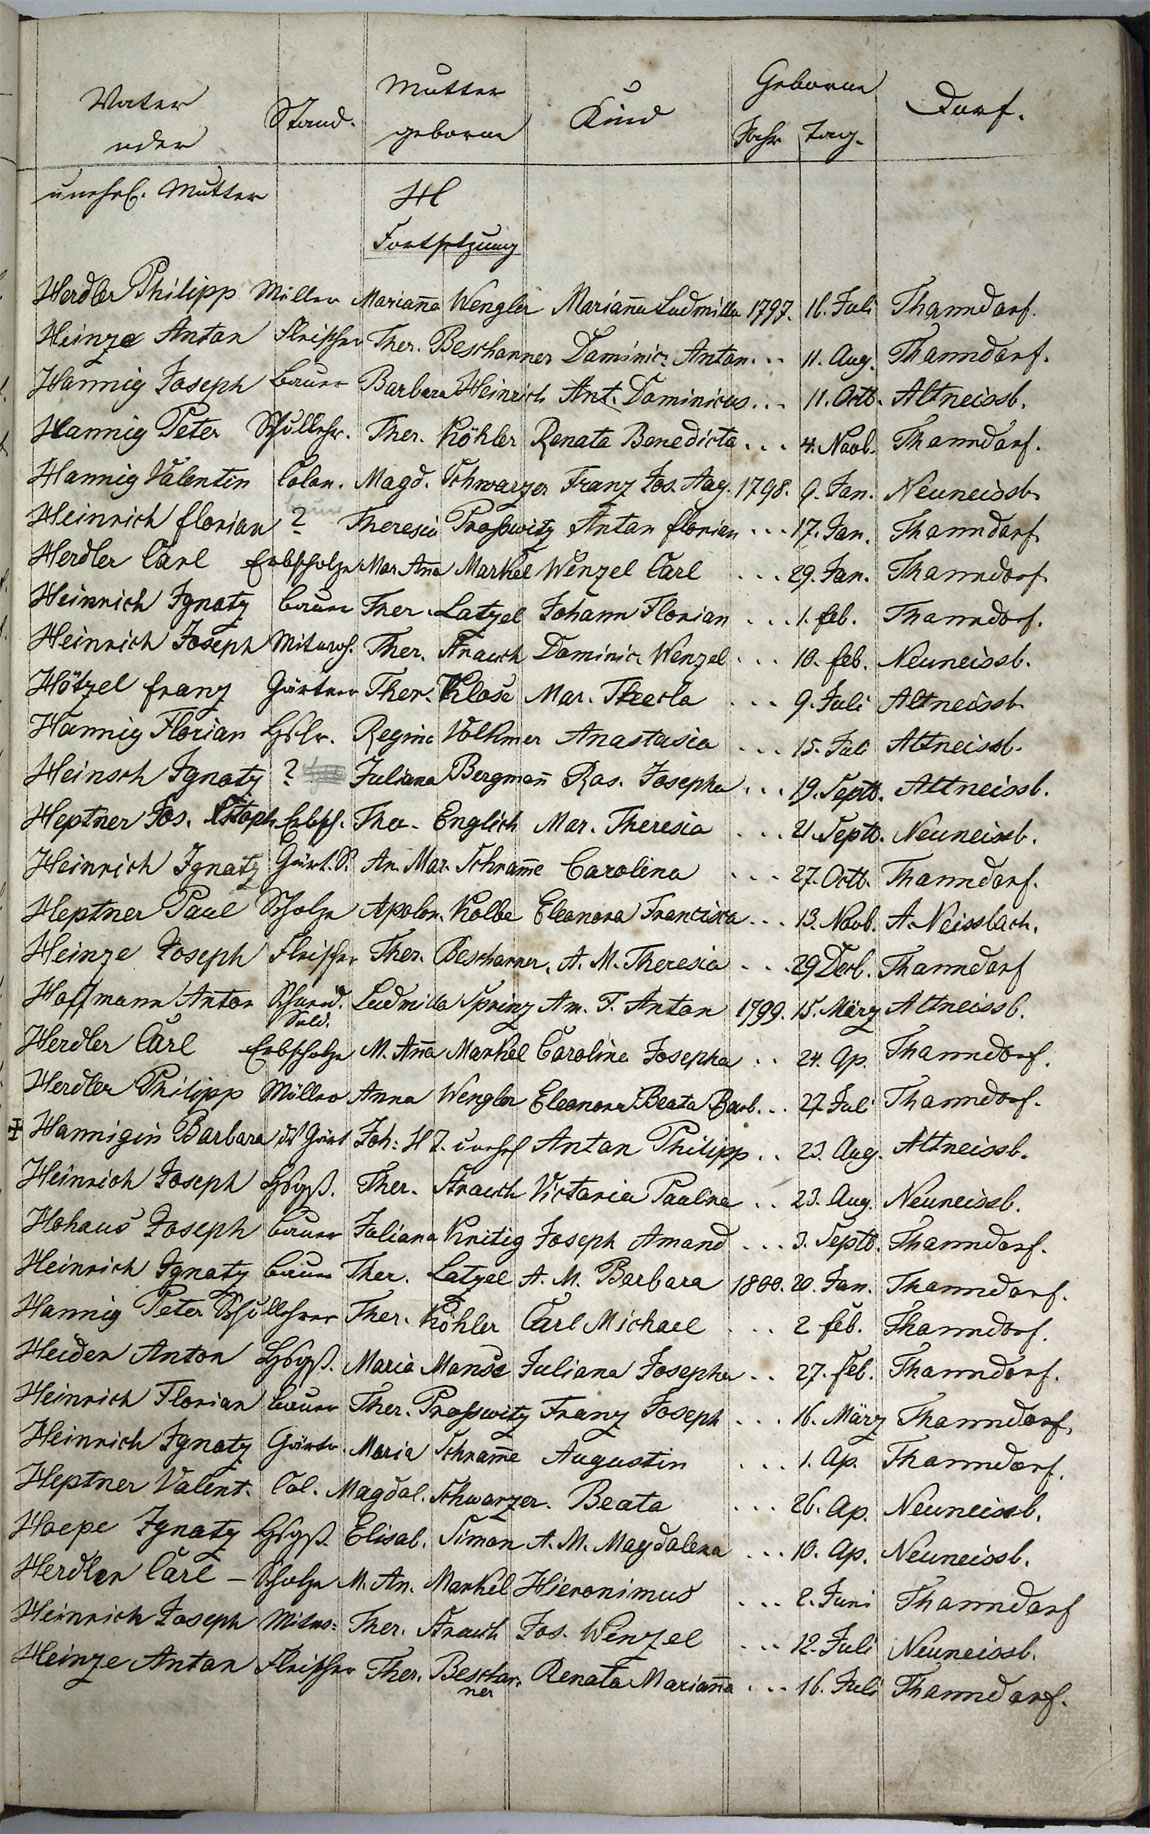 Vater
oder
unehel. Mutter
Stand.
Mutter
geborne
Kind
Geboren
Jahr Tag.
Dorf.
H
Fortsetzung
Herdler Philipp Müller Mariana Wengler Mariana Ludmilla 1797. 16. Juli Thanndorf.
Heinze Anton Fleischer Ther. Beschorner Dominic. Anton ... 11. Aug. Thanndorf.
Hannig Joseph bauer Barbara Heinrich Ant. Dominicus ... 11. Octb. Altneissb.
Hannig Peter Schullehr. Ther. Köhler Renata Benedicta ... 4. Novb. Thanndorf.
Hannig Valentin Colon. Magd. Schwarzer Franz Jos. Aug. 1798. 9. Jan. Neuneissb.
Heinrich florian ? Theresia Prosswitz Anton florian ... 17. Jan. Thanndorf.
Herdler Carl Erbscholze Mar. Ana Markel Wenzel Carl ... 29. Jan. Thanndorf.
Heinrich Ignatz bauer Ther. Latzel Johann Florian ... 1. feb. Thanndorf.
Heinrich Joseph Ther. Strauch Dominic Wenzel ... 10. feb. Neuneissb.
Hötzel franz Gärtner Ther. Klose Mar. Thecla ... 9. Juli Altneissb.
Hannig Florian Hslr. Regina Volkmer Anastasia ... 15. Jul Altneissb.
Heinsch Ignatz ? Juliana Bergman Ros. Josepha ... 19. Septb. Altneissb.
Heptner Jos. Erbsch. The. Englich Mar. Theresia ... 21. Septb. Neuneissb.
Heinrich Ignatz Gärt. S. An. Mar. Schrame Carolina ... 27. Octb. Thanndorf.
Heptner Paul Scholze Apolon. Kolbe Eleonora Francisca ... 13. Novb. A. Neissbach.
Heinze Joseph Fleischer Ther. Beschorner. A. M. Theresia ... 29 Decb. Thanndorf
Hoffmann Anton Schmid. Ludmilla Sprinz Am. F. Anton 1799. 15. März Altneissb.
Sold.
Herdler Carl Erbscholze M. Ana Markel Carolina Josepha .. 24. Ap. Thanndorf.
Herdler Philipp Müller Anna Wengler Eleonora Beata Barb. .. 27. Jul Thanndorf.
Hannigin Barbara Gärt Joh: H T. unehl Anton Philipp .. 23. Aug. Altneissb.
Heinrich Joseph Hsgß. Ther. Strauch Victoria Paulina .. 23. Aug. Neuneissb.
Hohaus Joseph bauer Juliana Knitig Joseph Amand ... 3. Septb. Thanndorf.
Heinrich Ignatz bauer Ther. Latzel A. M. Barbara 1800. 20. Jan. Thanndorf.
Hannig Peter Schullehrer Ther. Köhler Carl Michael ... 2 feb. Thanndorf.
Heider Anton Hsgß. Maria Manse Juliana Josepha .. 27. feb. Thanndorf.
Heinrich Florian bauer Ther. Prosswitz Franz Joseph ... 16. März Thanndorf.
Heinrich Ignatz Gärtn. Maria Schrame Augustin ... 1. Ap. Thanndorf.
Heptner Valent. Col. Magdal. Schwarzer. Beata ... 26. Ap. Neuneissb.
Hoepe Ignatz Hsgß. Elisab. Simon A. M. Magdalena ... 10. Ap. Neuneissb.
Herdler Carl – Scholze M. An. Markel Hieronimus ... 2. Juni Thanndorf
Heinrich Joseph Ther. Strauch Jos. Wenzel ... 12. Juli Neuneissb.
Heinze Anton Fleischer Ther. Beschor- Renata Mariana ... 16. Juli Thanndorf.
ner